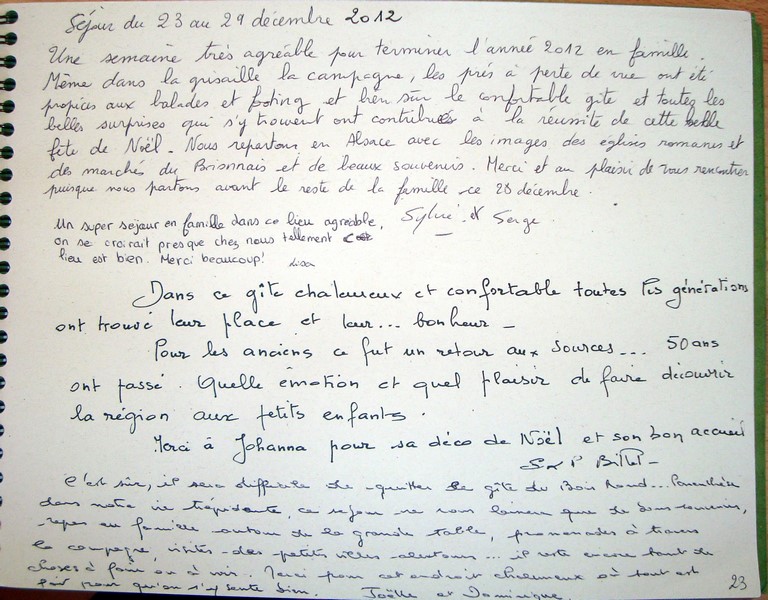 Séjour du 23 au 29 décembre 2012
Une semaine très agréable pour terminer l'année 2012 en famille.
Même dans la grisaille la campagne, les prés à perte de vue ont été
propices aux balades et footing et bien sûr le confortable gîte et toutes les
belles surprises qui s'y trouvent ont contribués à la réussite de cette belle
fête de Noël. Nous repartons en Alsace avec les images des églises romanes et
des marchés du Brionnais et de beaux souvenirs. Merci et au plaisir de vous rencontrer
puisque nous partons avant le reste de la famille ce 28 décembre.
Sylvie et Serge
Un super sejour en famille dans ce lieu agréable,
on se croirait presque chez nous tellement ce
lieu est bien. Merci beaucoup! Lisa
Dans ce gîte chaleureux et confortable toutes les générations
ont trouvé leur place et leur... bonheur -
Pour les anciens ce fut un retour aux sources... 50 ans
ont passé. Quelle émotion et quel plaisir de faire découvrir
la région aux petits enfants.
Merci à Johanna pour sa déco de Noël et son bon accueil
C'est sûr, il sera difficile de quitter le gîte du Bois Rond... Parenthèse
dans notre vie trépidante, ce séjour ne nous laissera que de bons souvenirs,
repas en famille autour de la grande table, promenades à travers
la campagne, visites des petites villes alentours... il reste encore tant de
choses à faire ou à voir. Merci pour cet endroit chaleureux où tout est
fait pour qu'on s'y sente bien. Joëlle et Dominique
23